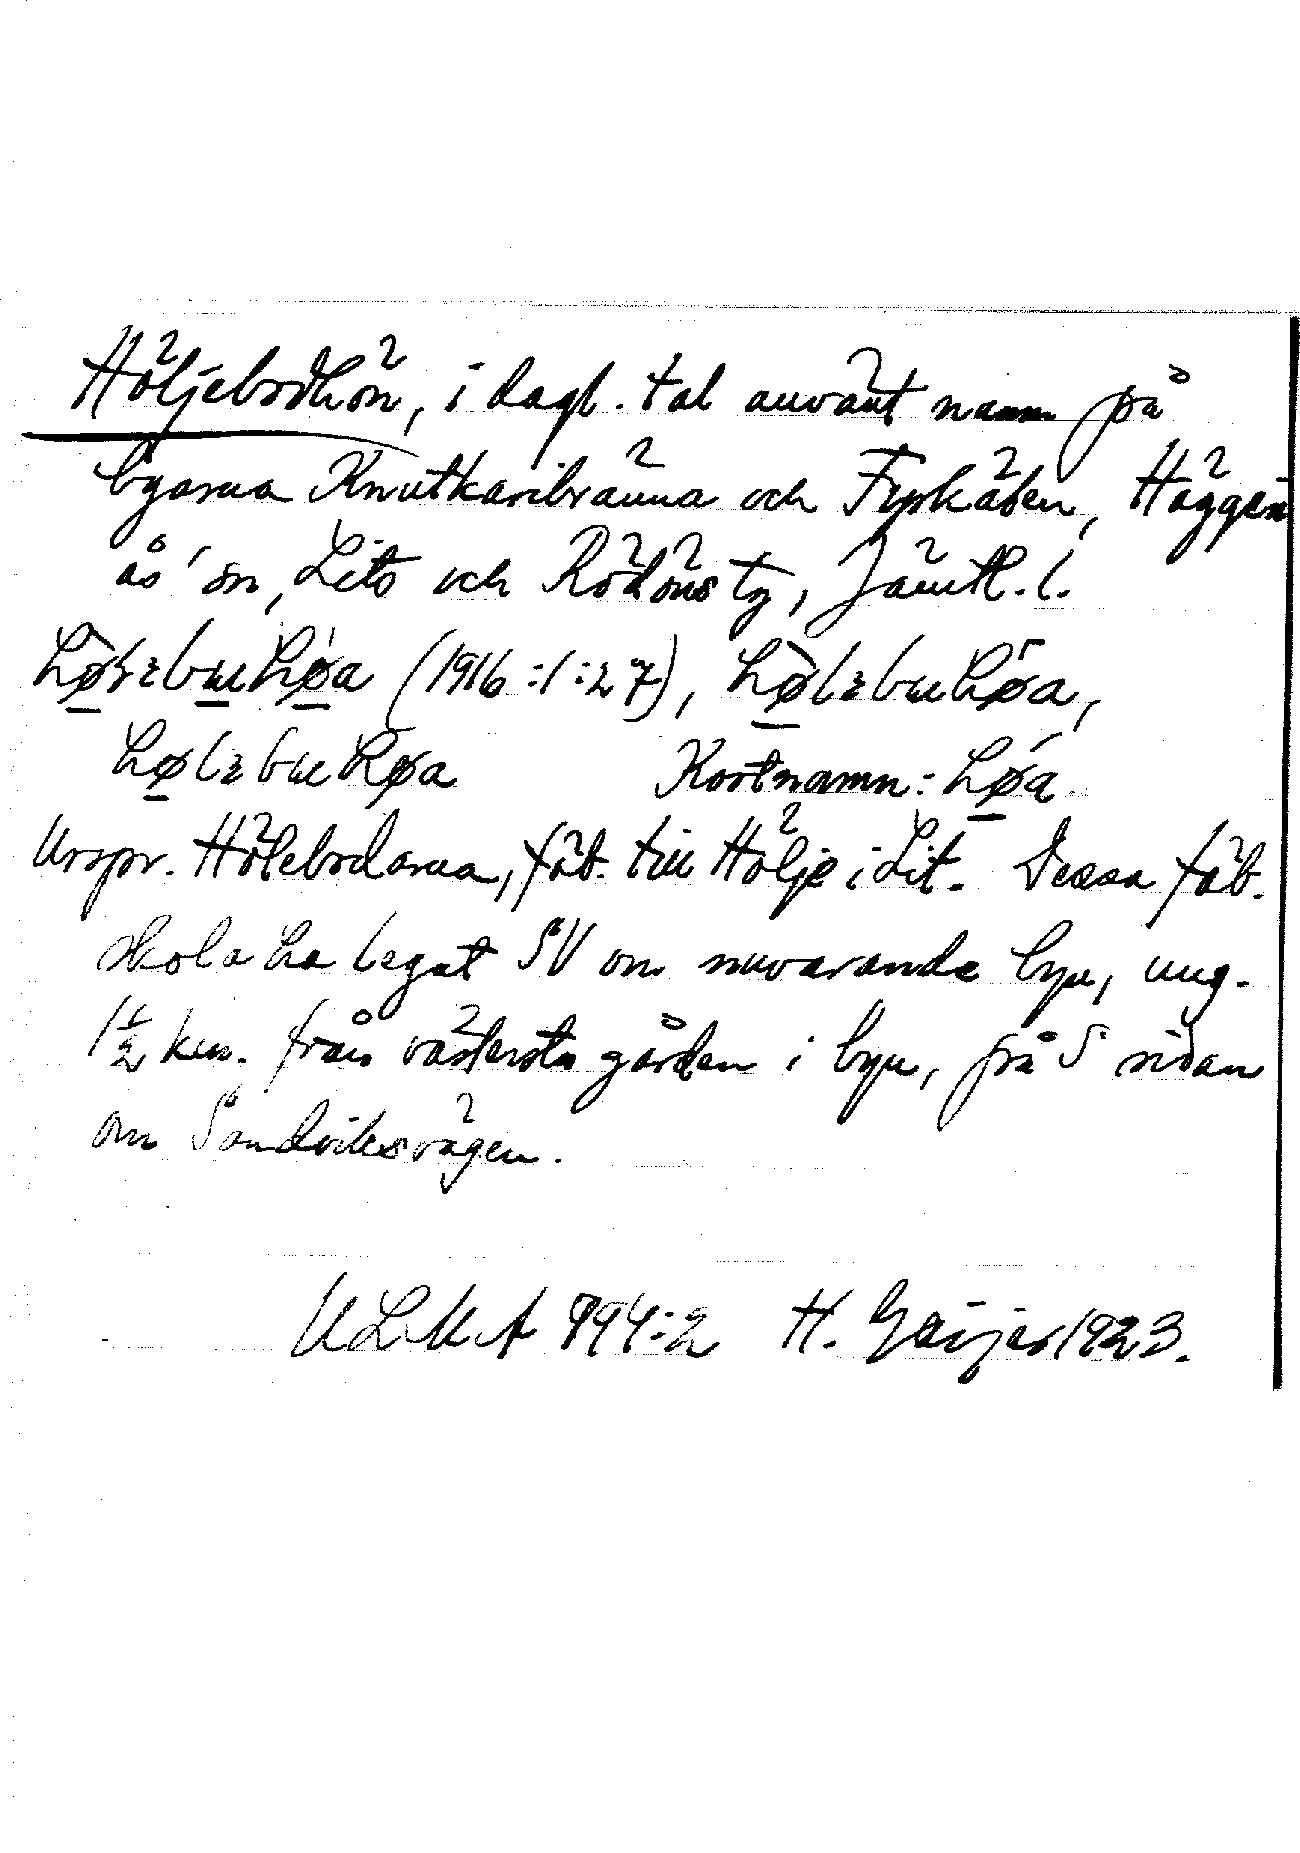 Höljebodhön, i dagl. tal använt namn på
byarna Knutkaribränna och Fyrkåsen, Häggen
ås sn, Lits och Rödöns tg, Jämtl. l.
(1916:1:27),
Kortnamn: høa
Urspr. Hölebodarna, fäb. till Hölje i Lit. Dessa fäb.
skola ha legat SV om nuvarande byn, ung.
1 1/2 km. från västersta gården i byn, på S sidan
om Sandviksvägen.
ULMA 994:2 H. Geijer 1923.